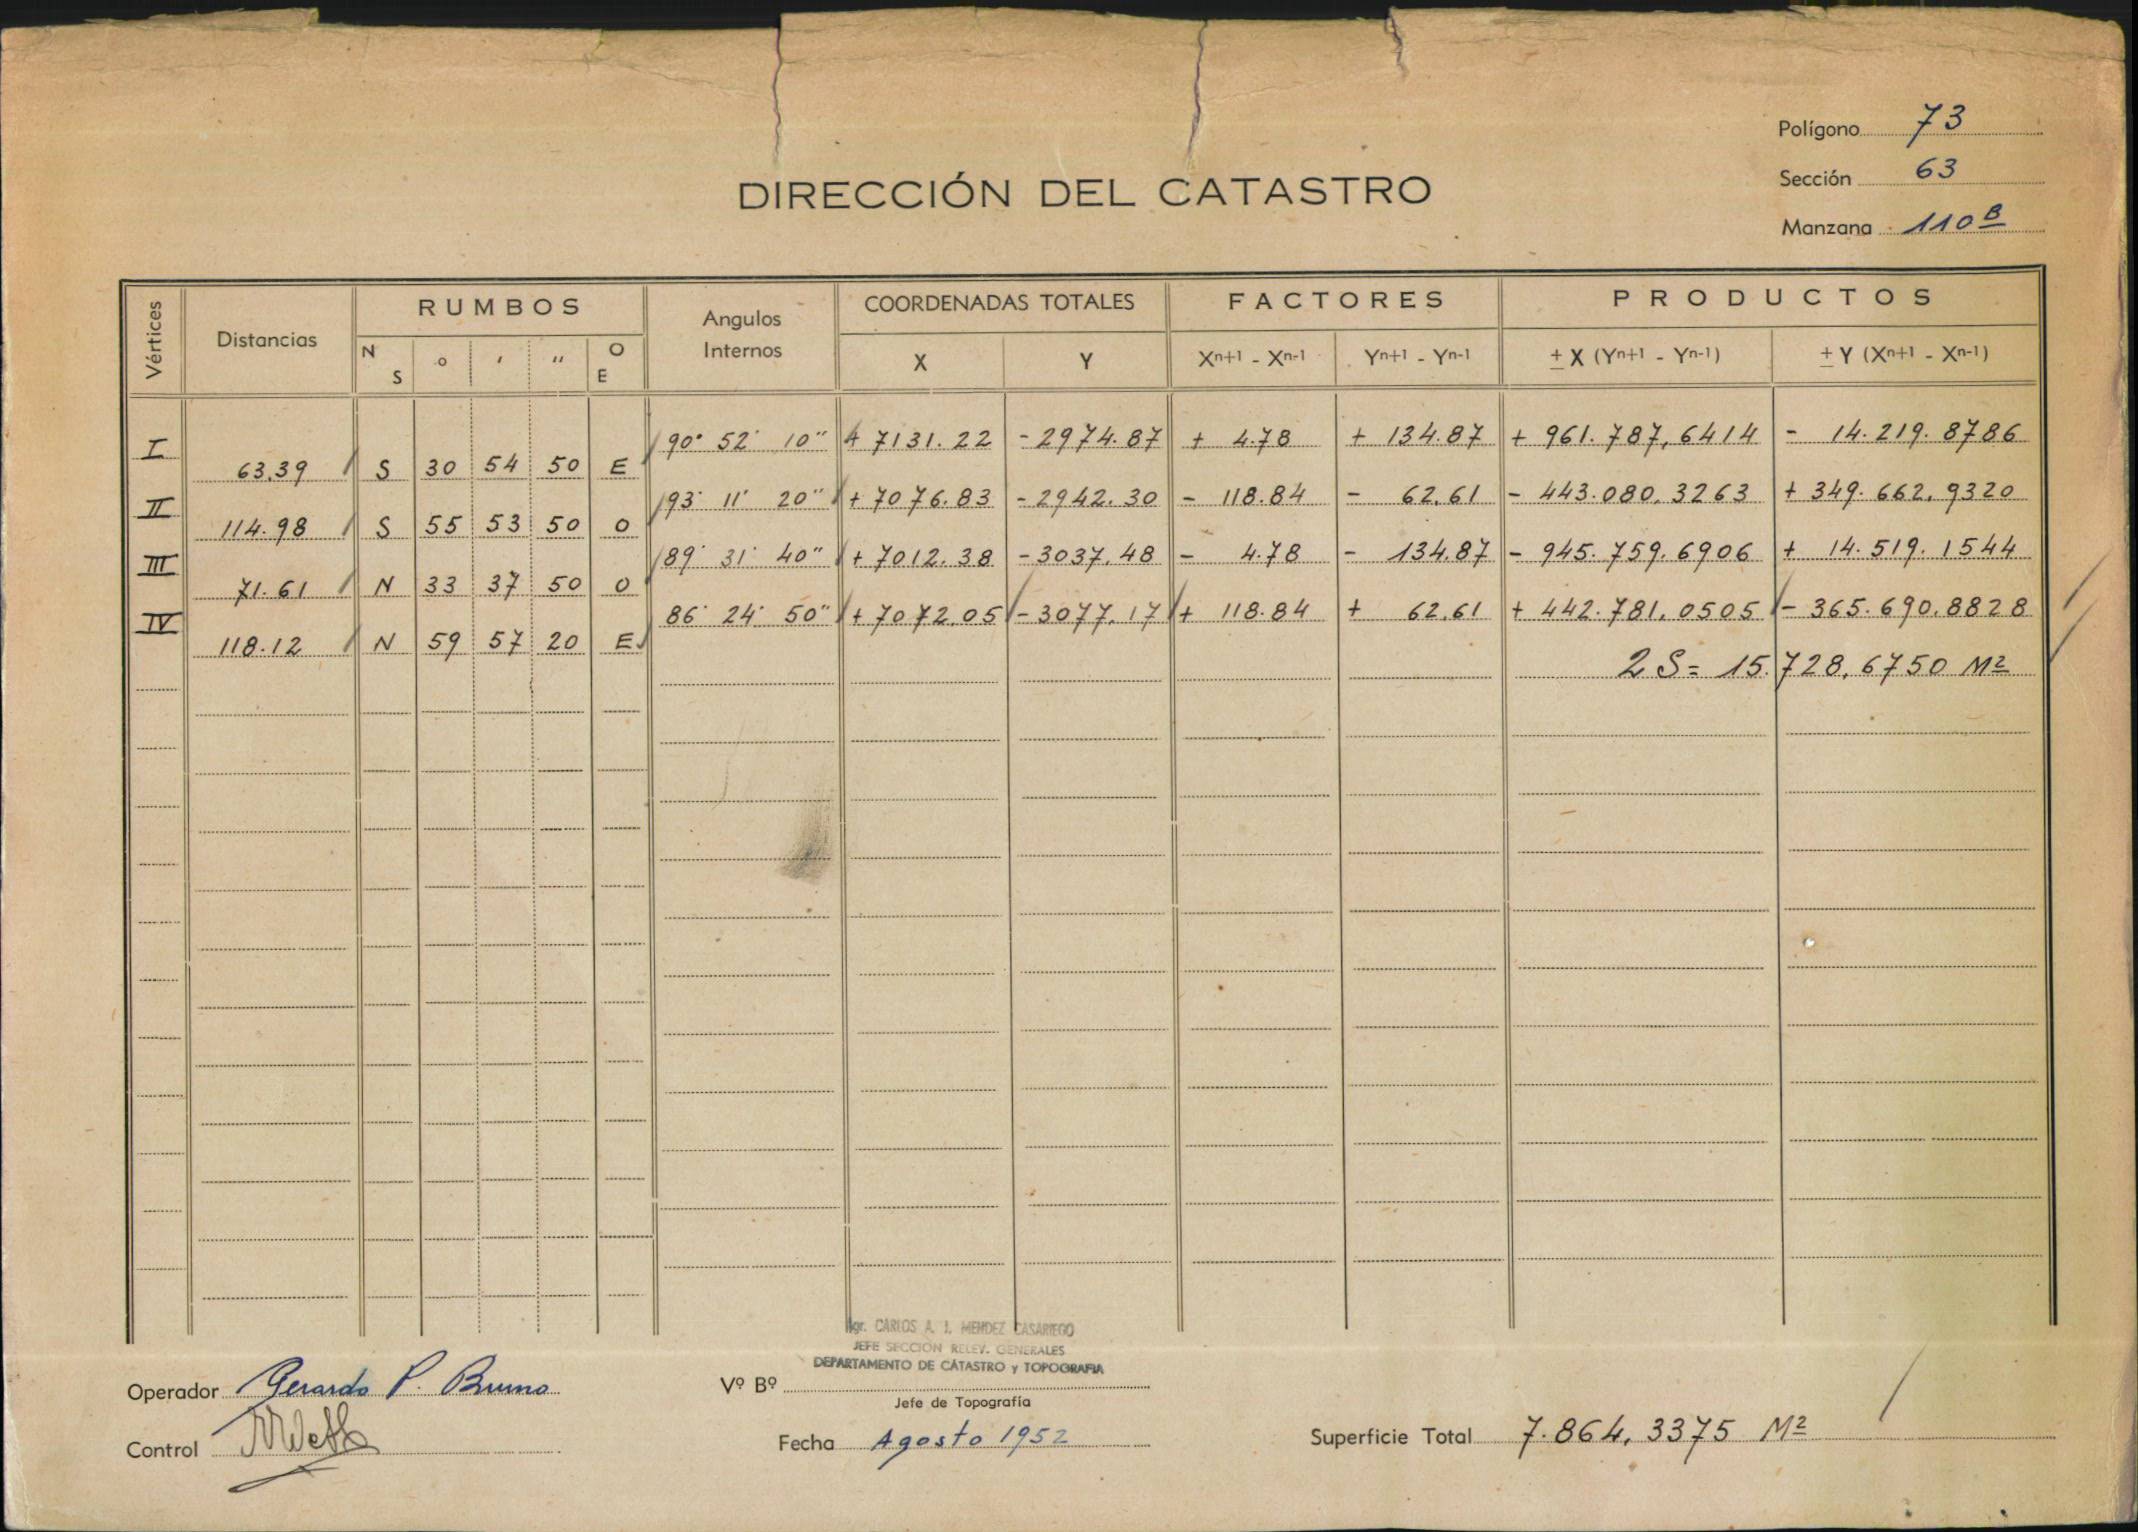 Polígono 73
Sección 63
Manzana 110 B
DIRECCIÓN DEL CATASTRO
Vértices Distancias RUMBOS Angulos Internos COORDENADAS TOTALES FACTORES PRODUCTOS
N S o ' '' O E X Y Xn+1 - Xn-1 Yn+1 - Yn-1 ± X (Yn+1 - Yn-1) ± Y (Xn+1 - Xn-1)
I 90° 52' 10" + 7131.22 - 2974.87 + 4.78 + 134.87 + 961.787,6414 - 14.219.8786
63.39 S 30 54 50 E
II 93° 11' 20" + 7076.83 - 2942.30 - 118.84 - 62.61 - 443.080.3263 + 349.662.9320
114.98 S 55 53 50 O
III 89° 31' 40" + 7012.38 - 3037.48 - 4.78 - 134.87 - 945.759.6906 + 14.519.1544
71.61 N 33 37 50 O
IV 86° 24' 50" + 7072.05 - 3077.17 + 118.84 + 62.61 + 442.781.0505 - 365.690.8828
118.12 N 59 57 20 E
2 S = 15.728,6750 M2
Agr. CARLOS A. J. MENDEZ CASARIEGO
JEFE SECCION RELEV. GENERALES
DEPARTAMENTO DE CATASTRO y TOPOGRAFIA
Operador Gerardo P. Bruno
Vº Bº
Jefe de Topografía
Control
Fecha Agosto 1952
Superficie Total 7.864,3375 M2